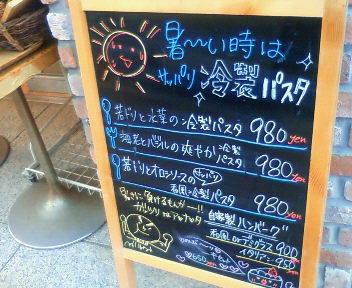 暑〜い時は
サッパリ 冷製パスタ
若ドリと水菜の冷製パスタ 980yen
海老とバジルの爽やか冷製パスタ 980yen
若ドリとオロシソースのサッパリ和風冷製パスタ 980yen
暑さに負けるもんかー!!
ガッツリ
自家製ハンバーグ
和風orデミグラス 900
イタリアン 950yen
650yen